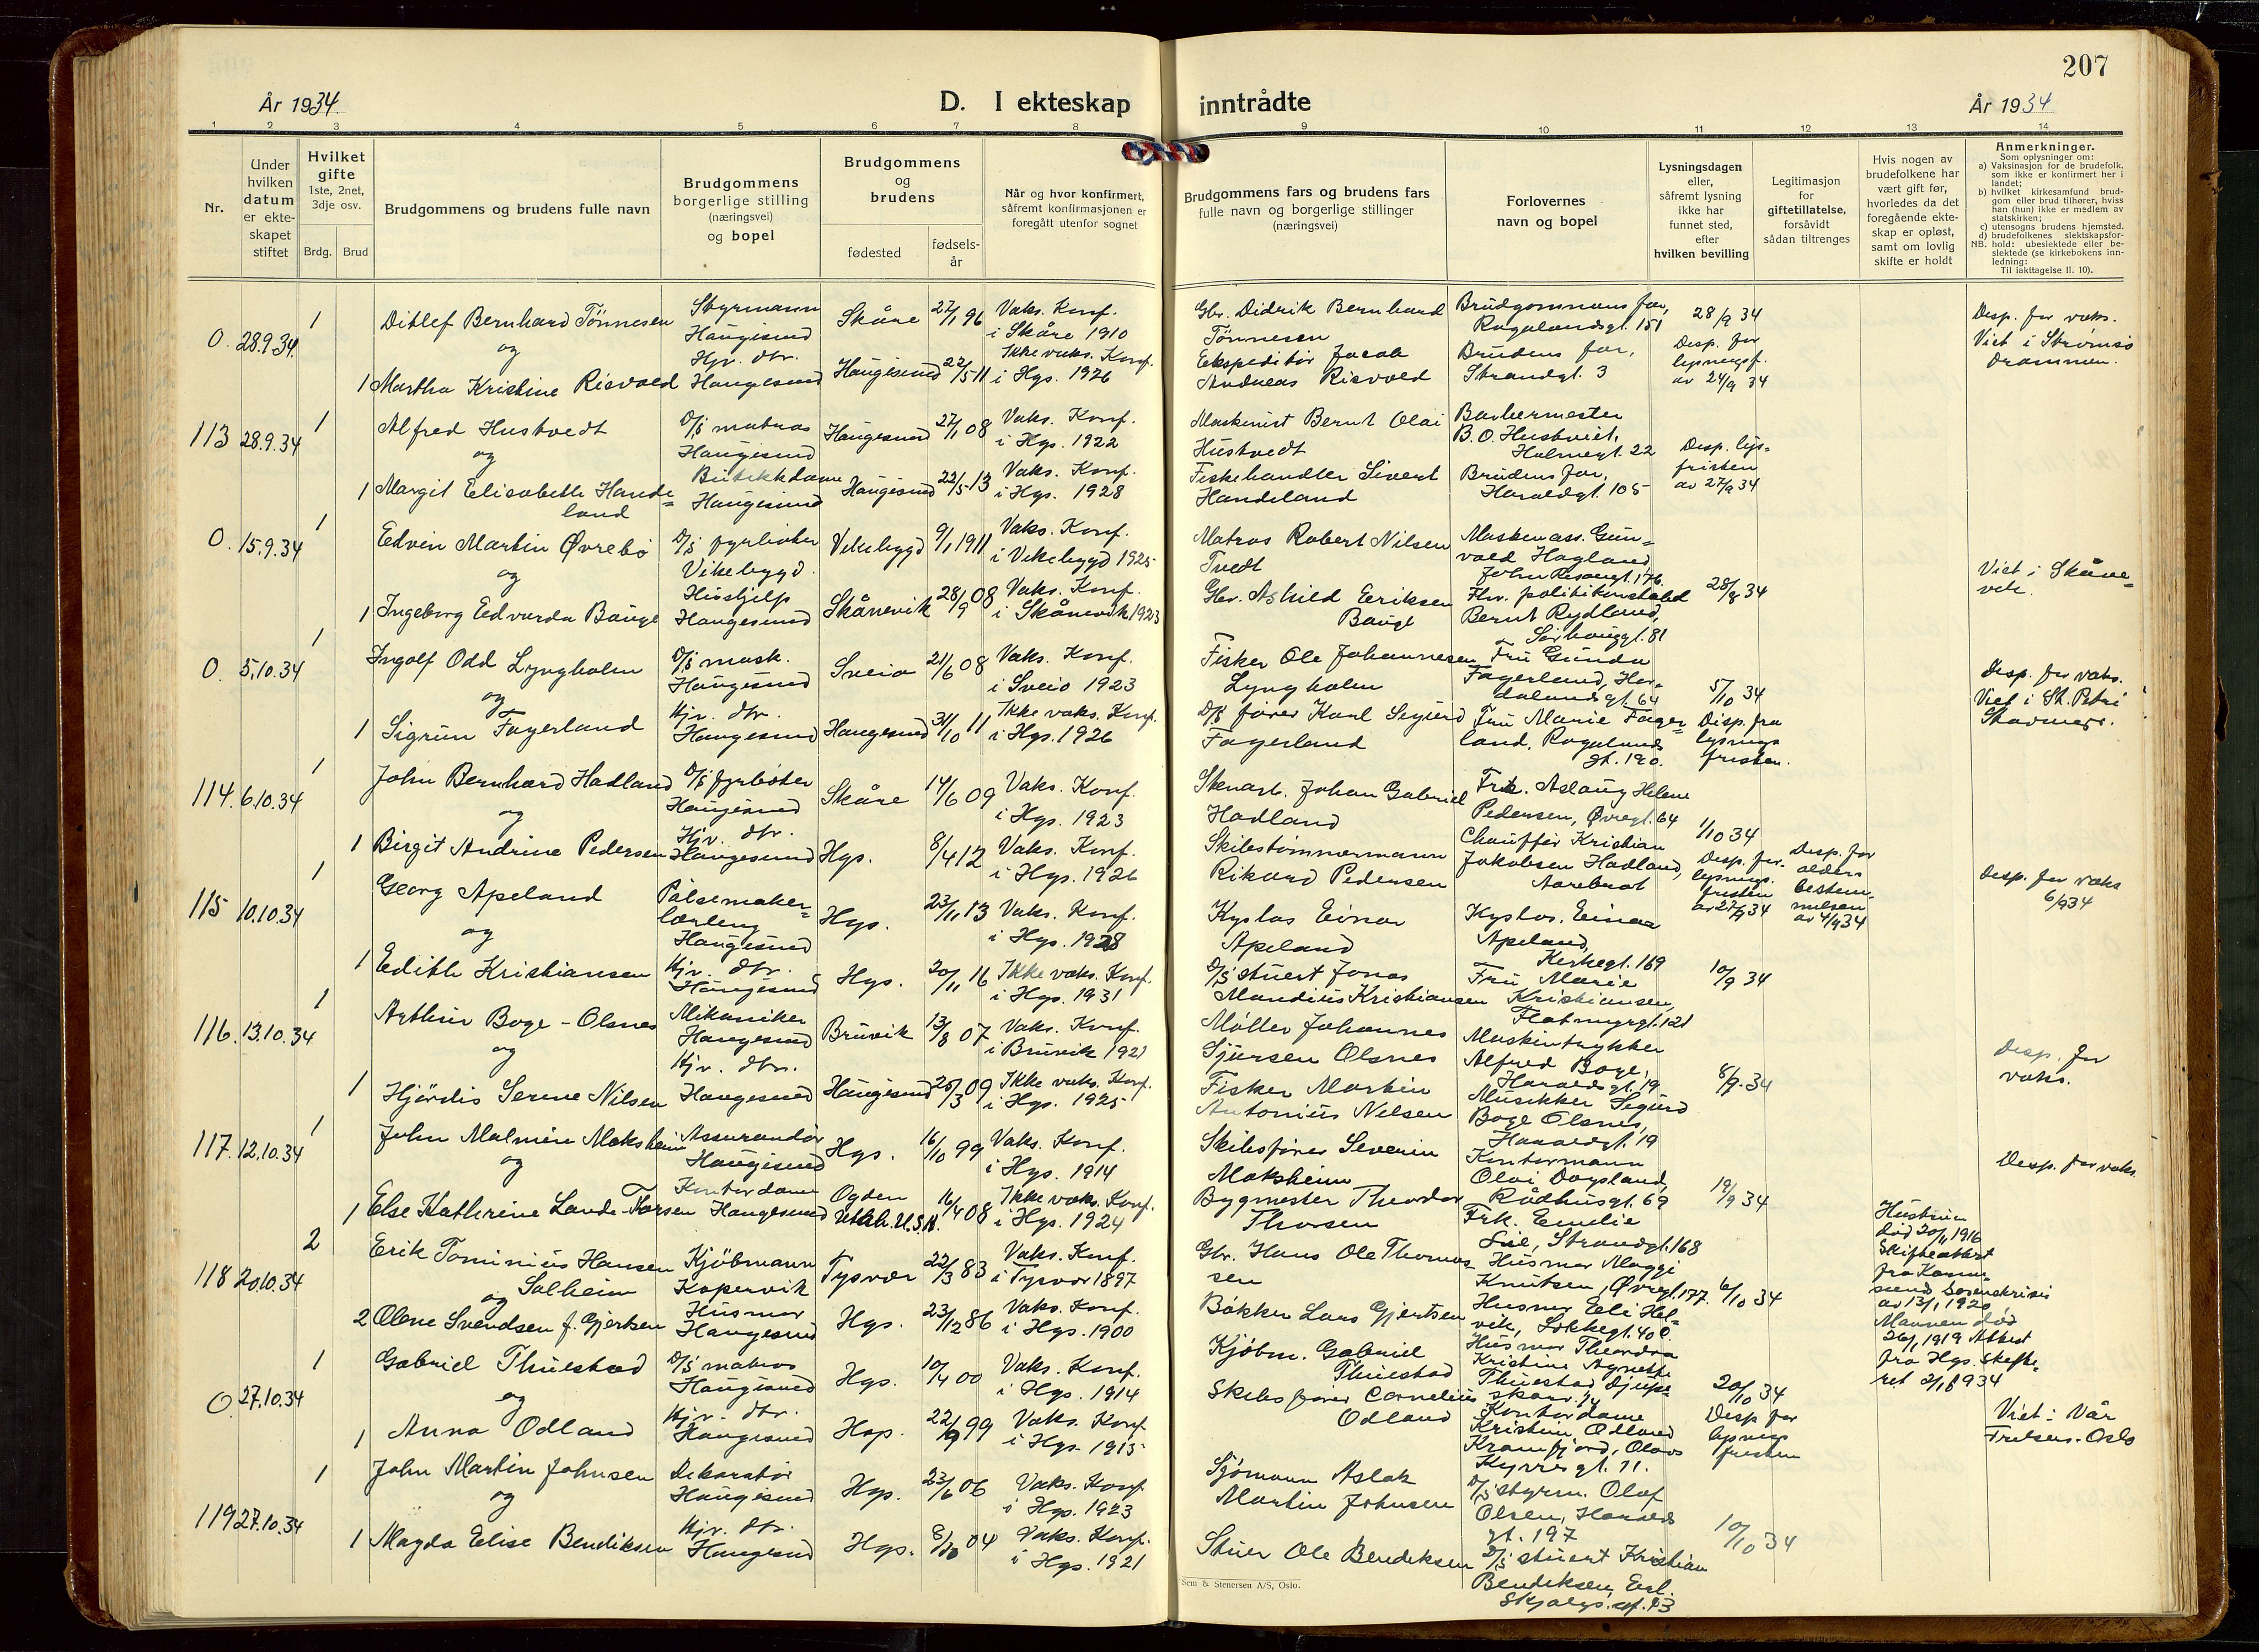 207
År 1934.
D. I ekteskap
inntrådte
År 1934
1 2 3 4 5 6 7 8 9 10 11 12 13 14
Nr.
Under
hvilken
datum
er ekte-
skapet
stiftet
Hvilket
gifte
1ste, 2net,
3dje osv.
Brdg. Brud
Brudgommens og brudens fulle navn
Brudgommens
borgerlige stilling
(næringsvei)
og bopel
Brudgommens
og
brudens
fødested
fødsels-
år
Når og hvor konfirmert,
såfremt konfirmasjonen er
foregått utenfor sognet
Brudgommens fars og brudens fars
fulle navn og borgerlige stillinger
(næringsvei)
Forlovernes
navn og bopel
Lysningsdagen
eller,
såfremt lysning
ikke har
funnet sted,
efter
hvilken bevilling
Legitimasjon
for
giftetillatelse,
forsåvidt
sådan tiltrenges
Hvis nogen av
brudefolkene har
vært gift før,
hvorledes da det
foregående ekte-
skap er opløst,
samt om lovlig
skifte er holdt
Anmerkninger.
Som oplysninger om:
a) Vaksinasjon for de brudefolk,
som ikke er konfirmert her i
landet;
b) hvilket kirkesamfund brud-
gom eller brud tilhører, hviss
han (hun) ikke er medlem av
statskirken;
c) utensogns brudens hjemsted.
d) brudefolkenes slektskapsfor-
NB. hold: ubeslektede eller be-
slektede (se kirkebokens inn-
ledning:
Til iakttagelse II. 10).
0. 28.9.34. 1 Ditlef Bernhard Tönnesen Styrmann Haugesund Skåre 27/1 96 Vaks. Konf. i Skåre 1910
og
1 Martha Kristine Risvold Hjv. dtr. Haugesund Haugesund 22/5 11 Ikke vaks. Konf. i Hgs. 1926
Gbr. Didrik Bernhard Tönnesen
Brudgommens far, Rogalandsgt. 151
Ekspeditör Jacob Andreas Risvold
Brudens far, Strandgt. 3
28/9 34 Desp. for lysningsf. av 24/9 34
Desp. for vaks. Viet i Strømsø Drammen.
113 28.9.34 1 Alfred Hustvedt D/s matros Haugesund Haugesund 27/1 08 Vaks. Konf. i Hgs. 1922
og
1 Margit Elisabeth Hande=land Butikkdame Haugesund Haugesund 22/5 13 Vaks. Konf. i Hgs. 1928
Maskinist Bernt Olai Hustvedt
Barbermester B.O. Hustveit, Holmegt. 22
Fiskehandler Sivert Handeland
Brudens far, Haraldgt. 105
Desp. lys-fristen av 27/9 34
0. 15.9.34 1 Edvin Martin Øvrebö D/s fyrböter Vikebygd. Vikebygd 9/1 1911 Vaks. Konf. i Vikebygd 1925
og
1 Ingeborg Edvarda Bauge Hushjelp Haugesund Skånevik 28/9 08 Vaks. Konf. i Skånevik 1923
Matros Robert Nilsen Tvedt
Maskinass. Gun=vald Hagland, John Resavgt. 176.
Gbr. Askild Eriksen Bauge
Fhv. politikonstabel Bernt Rydland, Sørhauggt. 81
28/8 34
Viet i Skåne=vik.
0. 5.10.34 1 Ingolf Odd Lyngholm D/s mask. Haugesund Sveio 21/6 08 Vaks. Konf. i Sveio 1923
og
1 Sigrun Fagerland Hjv. dtr. Haugesund Haugesund 31/10 11 Ikke vaks. Konf. i Hgs. 1926
Fisker Ole Johannesen Lyngholm
Fru Gunda Fagerland, Hardalandsgt. 64
D/s förer Karl Sigurd Fagerland
Fru Marie Fager=land, Rogalands gt. 190.
5/10 34 Disp. fra lysnings fristen.
Desp. for vaks. Viet i St. Petri Stavanger.
114. 6.10.34 1 John Bernhard Hadland D/s fyrböter Haugesund Skåre 14/6 09 Vaks. Konf. i Hgs. 1923
og
1 Birgit Andrine Pedersen Hjv. dtr. Haugesund Hgs. 8/4 12 Vaks. Konf. i Hgs. 1926
Stenarb. Johan Gabriel Hadland
Frk. Aslaug Helene Pedersen, Øvregt. 64
Skibstömmermann Rikard Pedersen
Chauffør Kristian Jakobsen Hadland, Aarebrot
1/10 34 Desp. for lysnings. fristen av 27/9 34
Desp. for alders bestem. melsen av 4/9 34
115 10.10.34 1 Georg Apeland Pölsemaker=lærling Haugesund Hgs. 23/11 13 Vaks. Konf. i Hgs. 1928
og
1 Edith Kristiansen Hjv. dtr. Haugesund Hgs. 20/11 16 Ikke vaks. Konf. i Hgs. 1931
Kyslos Einar Apeland
Kyslos. Einar Apeland, Kirkegt. 169
D/s stuert Jonas Mandius Kristiansen
Fru Marie Kristiansen, Flotmyrgt. 121
10/9 34
Desp. for vaks 6/9 34
116. 13.10.34 1 Arthur Boge-Olsnes Mekaniker Haugesund Bruvik 13/8 07 Vaks. Konf. i Bruvik 1921
og
1 Hjördis Serine Nilsen Hjv. dtr. Haugesund Haugesund 25/3 09 Ikke vaks. Konf. i Hgs. 1925
Möller Johannes Sjursen Olsnes
Maskintrykker Alfred Boge, Haraldsgt. 19
Fisker Martin Antonius Nilsen
Musikker Sigurd Boge Olsnes, Haraldgt. 19
8/9. 34
Desp. for vaks.
117. 12.10.34 1 John Malmin Moksheim Assurandör Haugesund Hgs. 16/10 99 Vaks. Konf. i Hgs. 1914
og
1 Else Kathrine Lande-Torsen Kontordame Haugesund Ogden Utah. U.S.A. 16/4 08 Ikke vaks. Konf. i Hgs. 1924
Skibsfører Severin Moksheim
Kontormann Olai Dagsland, Rådhusgt. 69
Bygmester Theodor Thorsen
Frk. Emilie Lie, Strandgt. 168
19/9 34
Desp. for vaks.
118 20.10.34 2 Erik Tominius Hansen Solheim Kjöbmann Kopervik Tysvær 22/3 83 Vaks. Konf. i Tysvær 1897
og
2 Olene Svendsen f. Gjertsen Husmor Haugesund Hgs. 23/12 86 Vaks. Konf. i Hgs. 1900
Gbr. Hans Ole Thomas=sen
Husmor Maggi Knutsen, Øvregt. 177.
Bökker Lars Gjertsen
Husmor Eli Hel-vik, Sökkegt. 40 c.
6/10 34
Hustrun död 20/11 1916 Skifteattest fra Karmsund sorenskriveri av 13/1 1920, Mannen död 26/1 1919 Attest fra Hgs. skifte-ret 2/18934
0. 27.10.34 1 Gabriel Thuestad D/s matros Haugesund Hgs. 10/4 00 Vaks. Konf. i Hgs. 1914
og
1 Anna Odland Hjv. dtr. Haugesund Hgs. 22/9 99 Vaks. Konf. i Hgs. 1915
Kjöbm. Gabriel Thuestad
Husmor Theodora Kristine Agnette Thuestad, Djupaskar. 14
Skibsförer Cornelius Odland
Kontordame Kristine Odland Kramfjord, Olavs Kyrres gt. 11.
20/10 34 Desp for lysnings fristen
Viet i Vår Frelsers-Oslo
119 27.10.34 1 John Martin Johnsen Dekoratör Haugesund Hgs. 23/6 06 Vaks. Konf. i Hgs. 1923
og
1 Magda Elise Bendiksen Hjv. dtr. Haugesund Hgs. 8/10 04 Vaks. Konf. i Hgs. 1921
Sjömann Aslak Martin Johnsen
D/s styrm. Olaf Olsen, Haralds gt. 197
Stuer Ole Bendiksen
D/s stuert Kristian Bendiksen, Erl. Skjalgs. gt. 13
10/10 34
Sem & Stenersen A/S, Oslo.